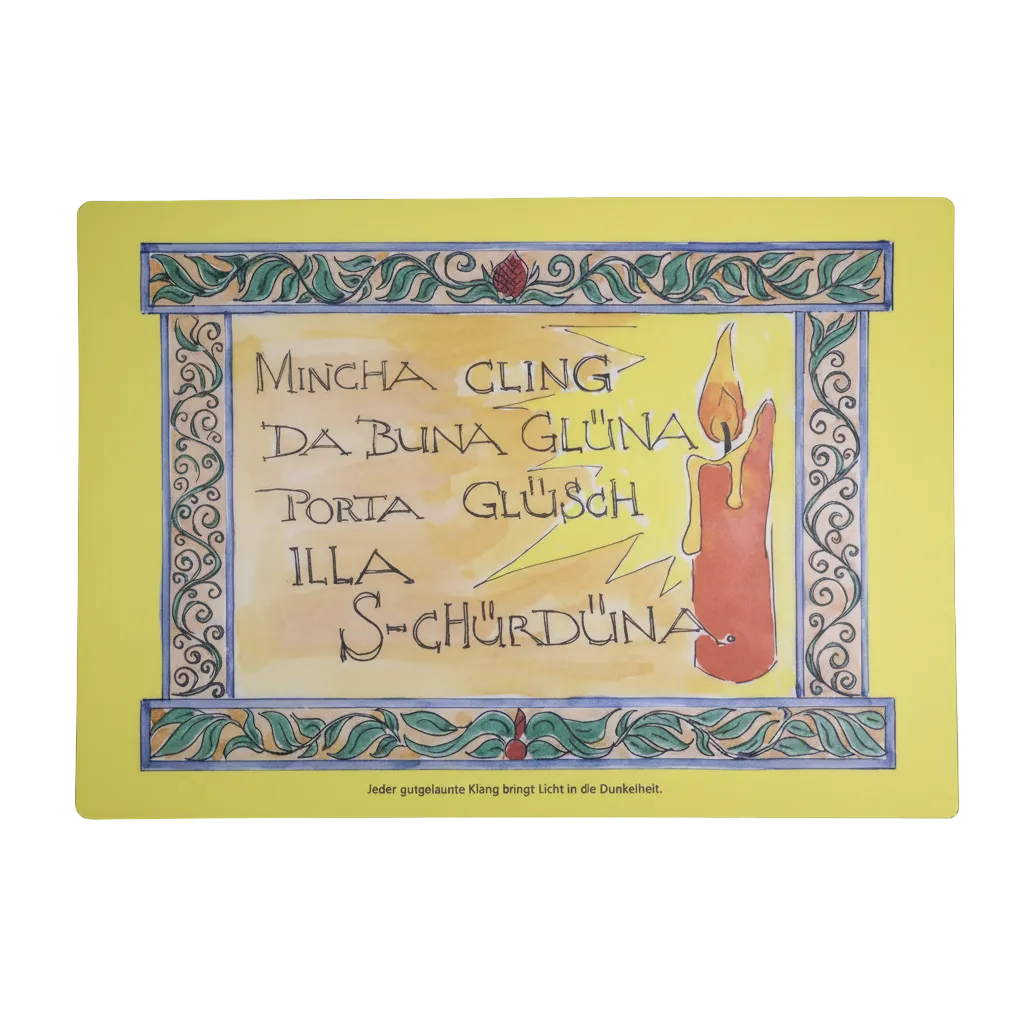 MINCHA CLING
DA BUNA GLÜNA
PORTA GLÜSCH
ILLA
S-CHÜRDÜNA
Jeder gutgelaunte Klang bringt Licht in die Dunkelheit.